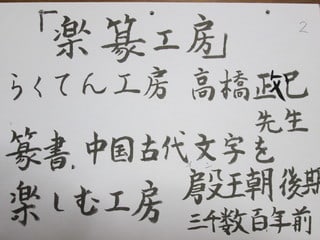 「楽篆工房」 2
らくてん工房 高橋政巳
先生
篆書、中国古代文字を
楽しむ工房 殷王朝後期
三千数百年前